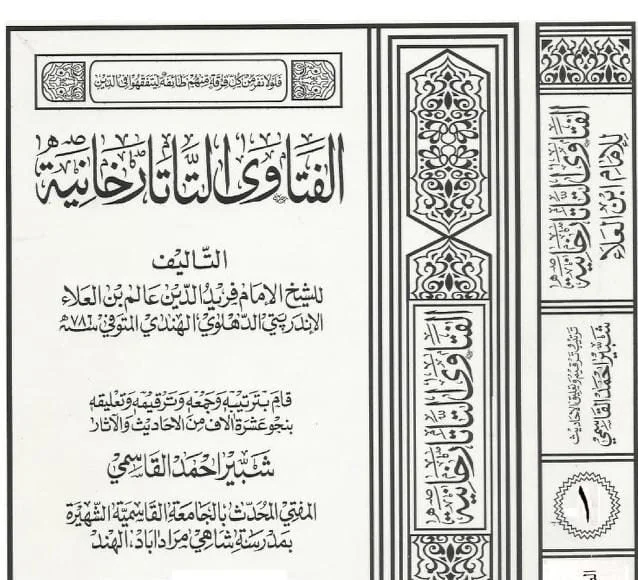 فلولا نفر من كل فرقة منهم طائفة ليتفقهوا في الدين
الفتاوى التاتارخانية
التأليف
للشيخ الإمام فريد الدين عالم بن العلاء
الإندريتي الدهلوي الهندي المتوفى سنة ٧٨٦هـ
قام بترتيبه وجمعه وترقيمه وتعليقه
بنحو عشرة آلاف من الأحاديث والآثار
شبير أحمد القاسمي
المفتي المحدث بالجامعة القاسمية الشهيرة
بمدرسة شاهي مراداباد، الهند
الفتاوى التاتارخانية
الفتاوى التاتارخانية
للإمام ابن العلاء
ترتيب ترقيم وتعليق الأحاديث
شبير أحمد القاسمي
١